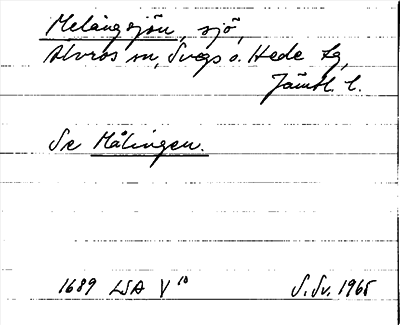 Melångsjön, sjö,
Älvros sn, Svegs o. Hede tg,
Jämtl. l.
Se Målingen.
1689 LSA V 10
S. Sv. 1965